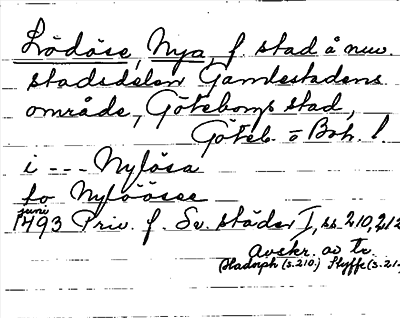 Lödöse, Nya, f. stad å nuv.
stadsdelen Gamlestadens
område, Göteborgs stad,
Göteb. o Boh. l.
i --- Nylösa
to Nylöösee
juni
1493 Priv. f. Sv. städer I, ss. 210, 212
Avskr. av tr.
(Hadorph (s.210.) Styffe (s.21